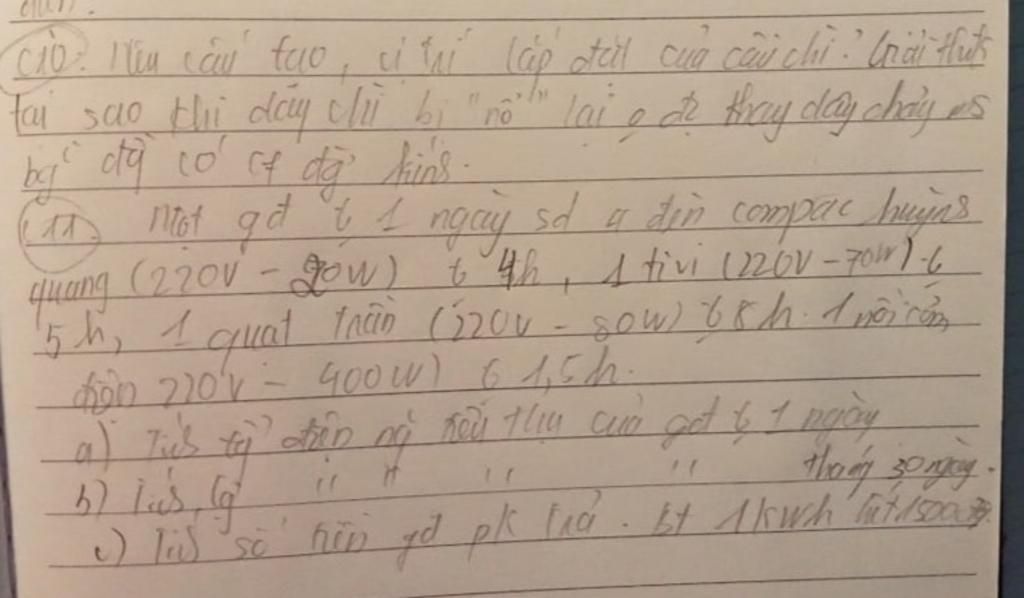 C10: Nêu cấu tạo, vị trí lắp đặt của cầu chì? Giải thích
tại sao khi dây chì bị "nổ" lại o đc thay dây chảy ms
bg dây có cf đg kính.
11 Một gđ tg 1 ngày sd 4 đèn compac huỳng
quang (220V - 20W) tg 4h, 1 tivi (220V - 70W) tg
5h, 1 quạt trần (220V - 80W) tg 8h. 1 nồi cơm
điện 220V - 400W) tg 1,5h.
a) Tính điện ng tiêu thụ của gđ tg 1 ngày
b) Tính " " " " tháng 30 ngày.
c) Tính số tiền gđ pk trả. bt 1kWh